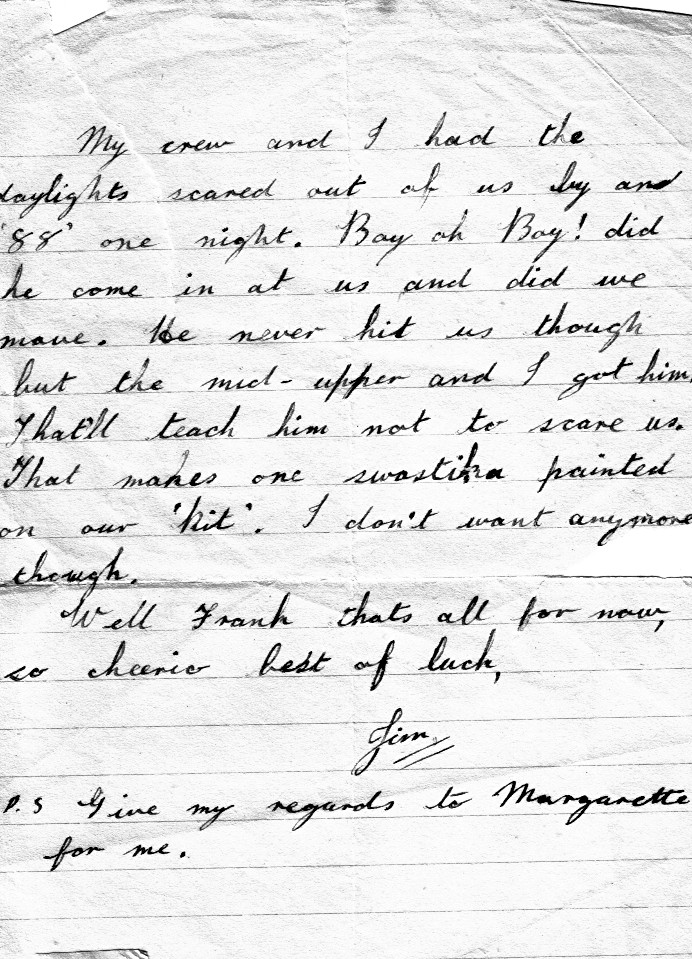 My crew and I had the
daylights scared out of us by and
'88' one night. Boy oh Boy! did
he come in at us and did we
move. He never hit us though
but the mid-upper and I got him.
That'll teach him not to scare us.
That makes one swastika painted
on our 'kit'. I don't want anymore
though.
Well Frank thats all for now,
so cheerio best of luck,
Jim
P.S Give my regards to Margarette
for me.